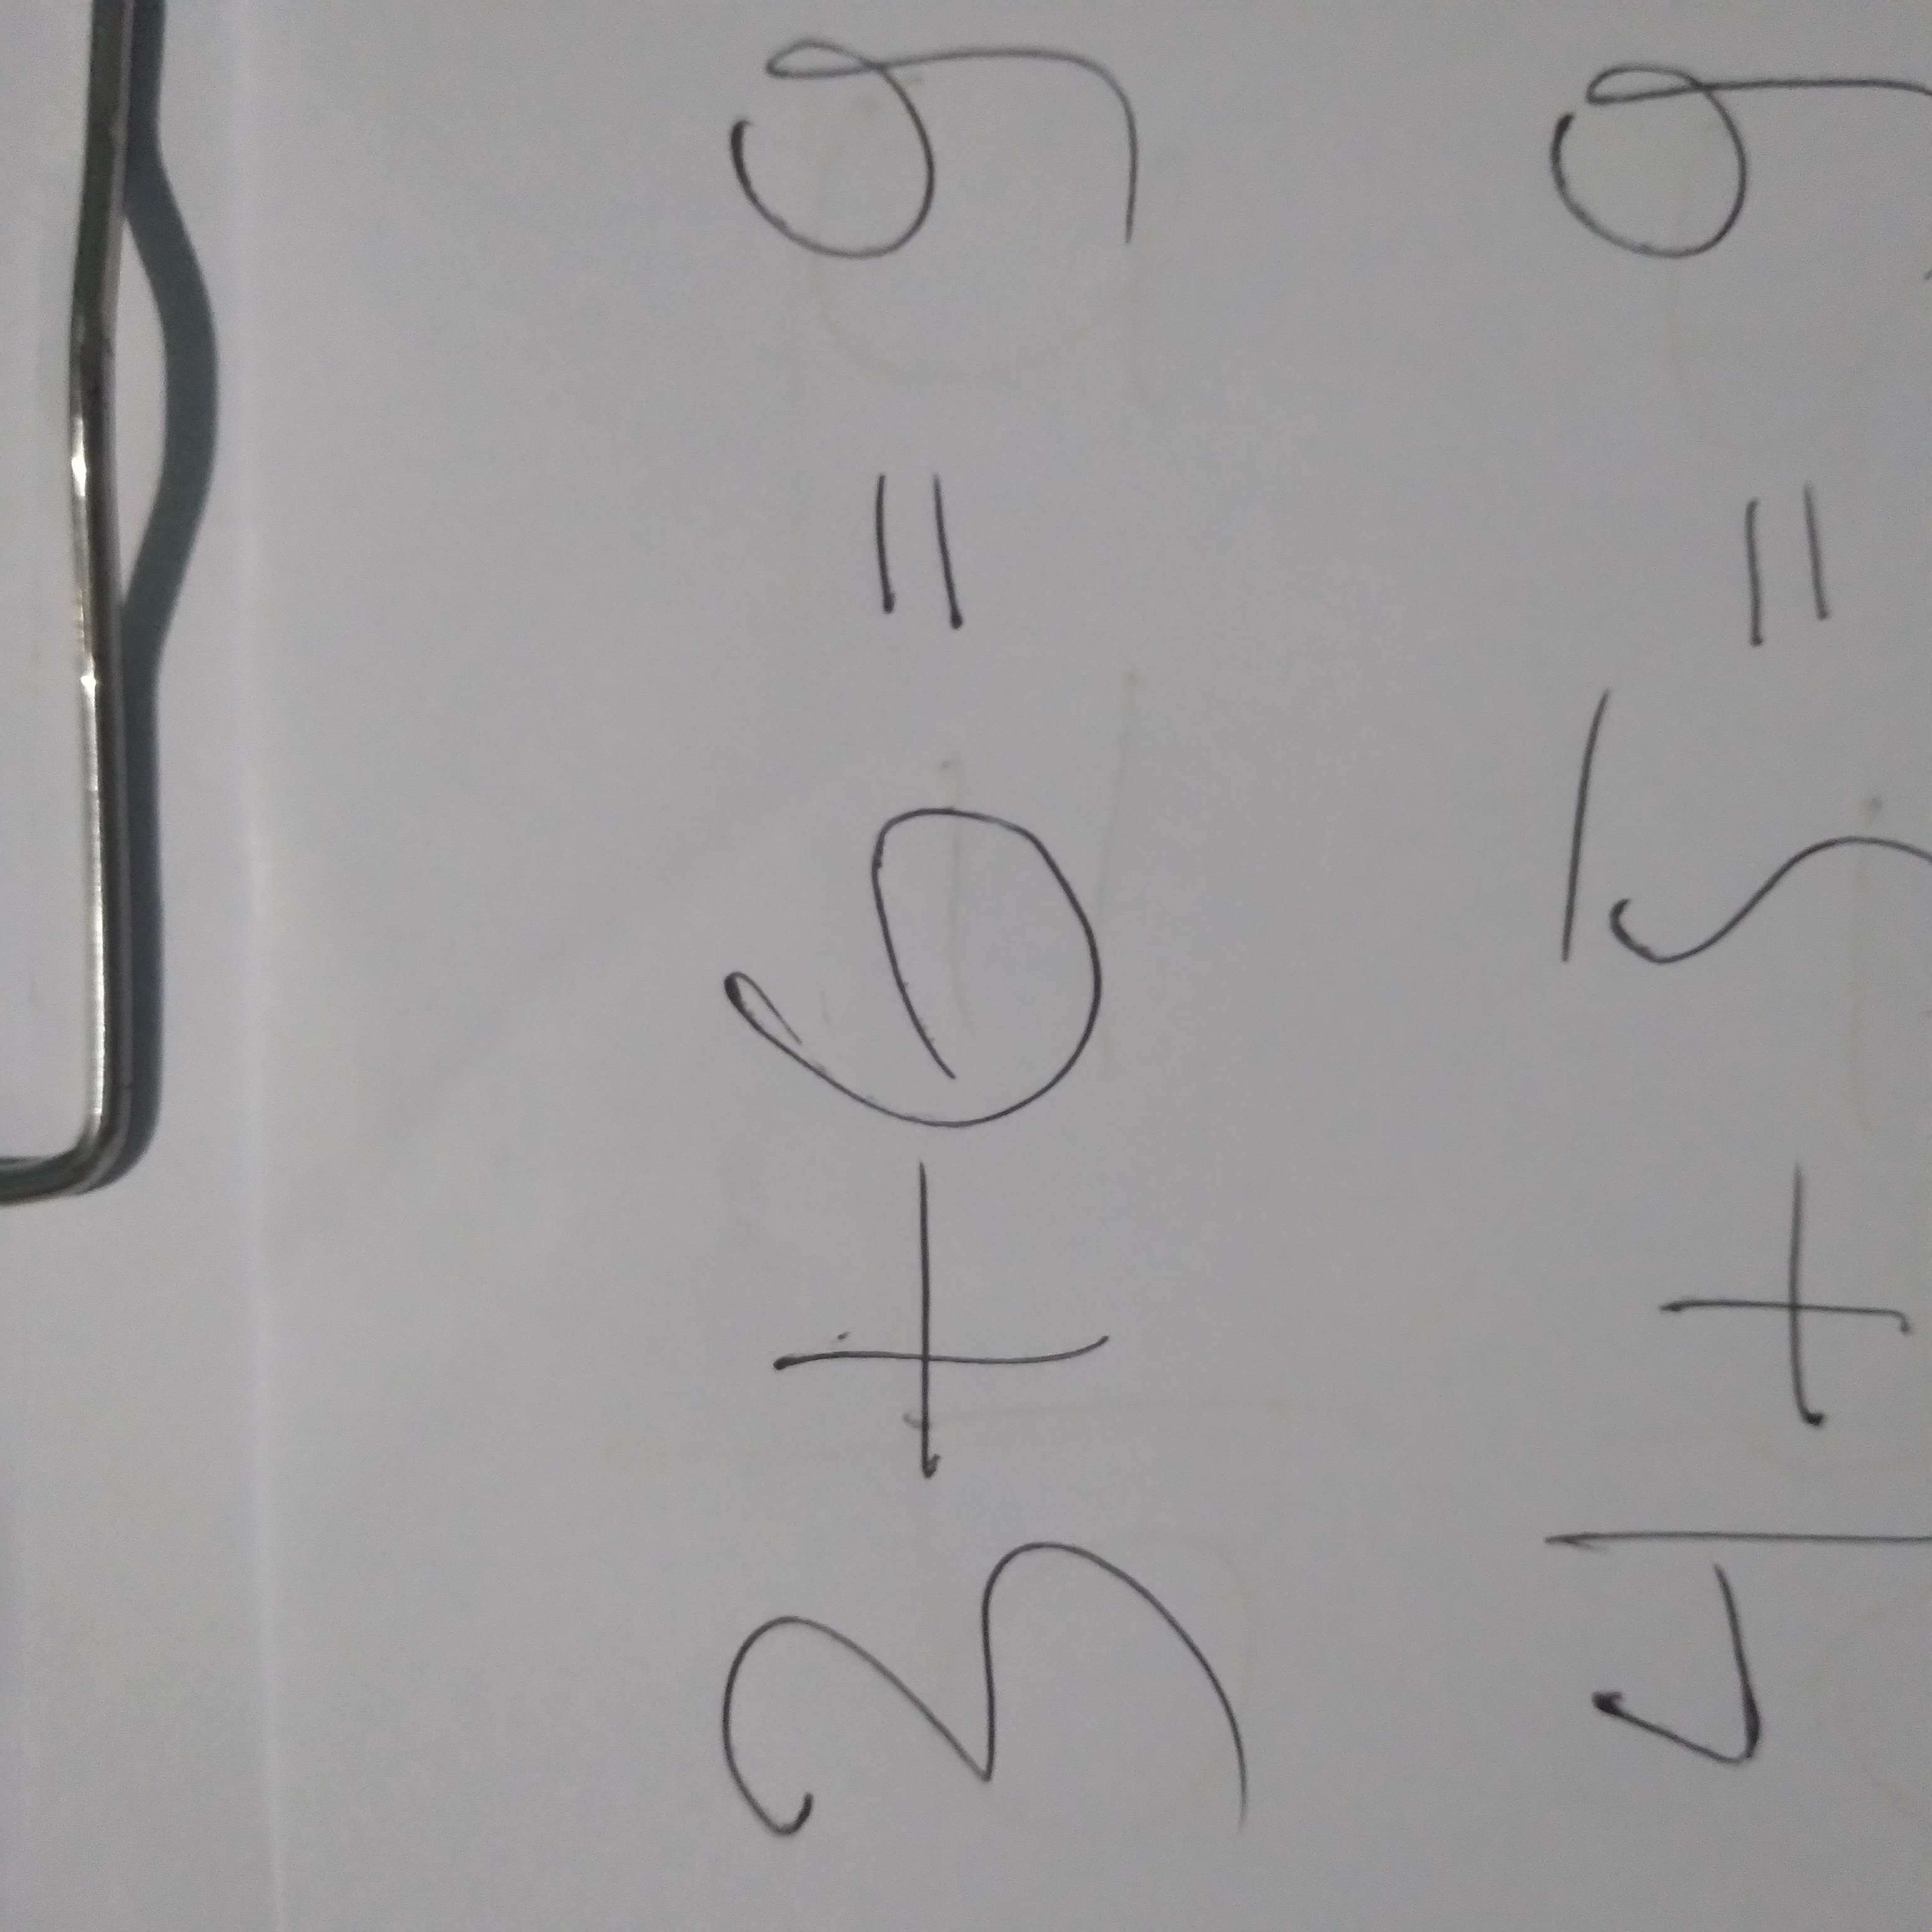 3+6 = 9
4 + 5 = 9